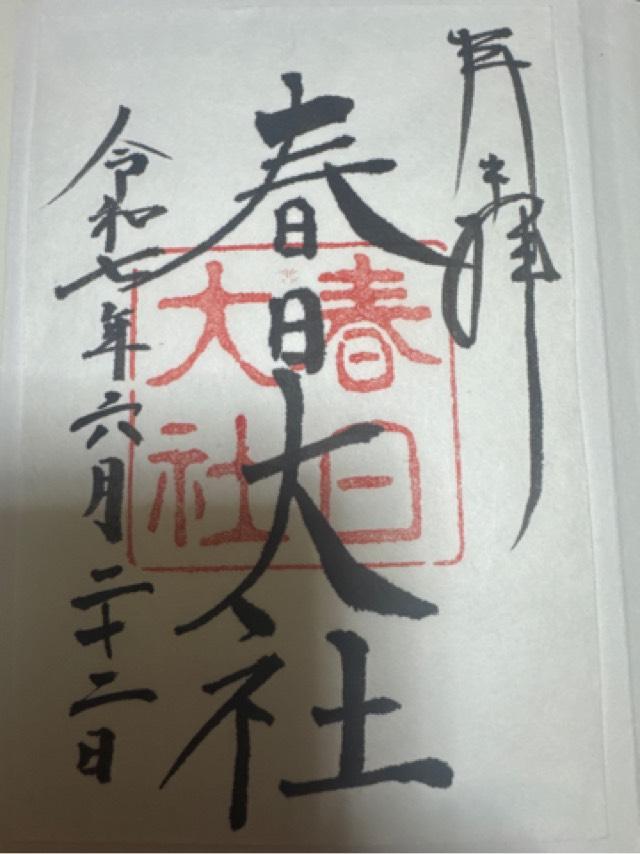 奉拝
春日大社
春日
大社
令和七年六月二十二日